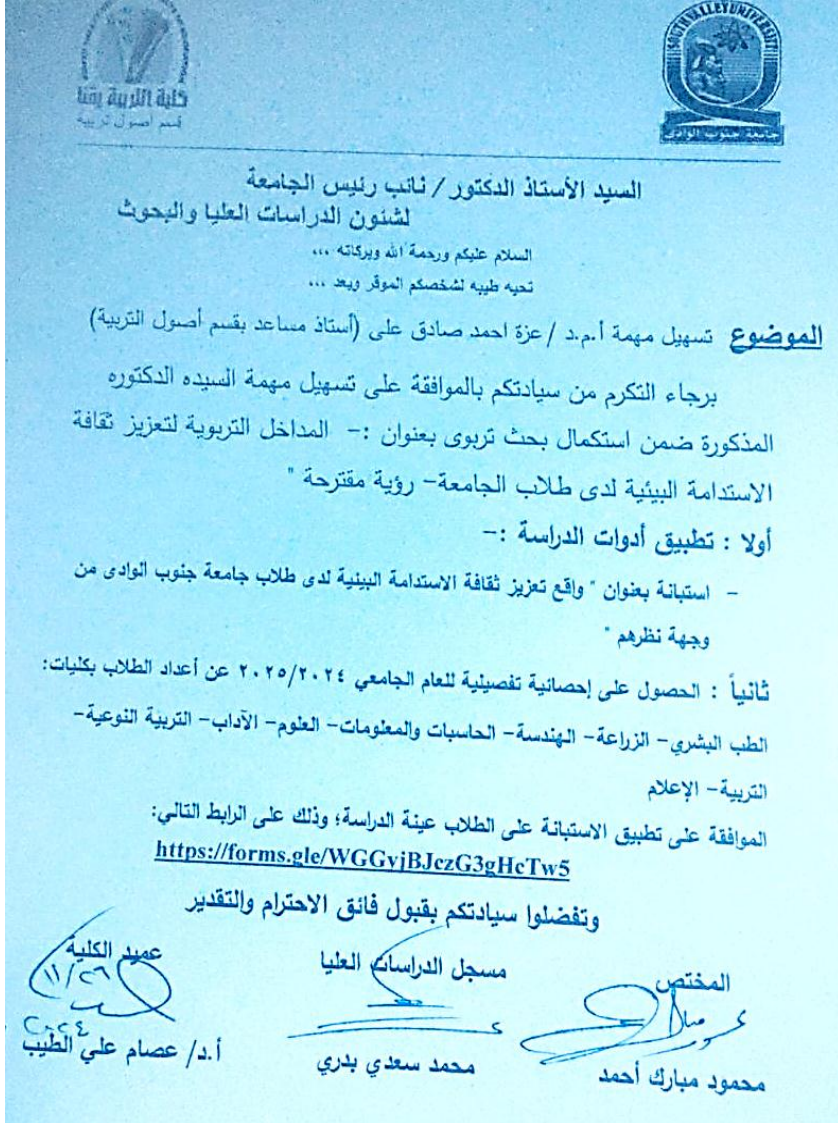 SOUTH VALLEY UNIVERSITY
جامعة جنوب الوادى
كلية التربية بقنا
قسم أصول تربية
السيد الأستاذ الدكتور / نائب رئيس الجامعة
لشئون الدراسات العليا والبحوث
السلام عليكم ورحمة الله وبركاته ,,,
تحيه طيبه لشخصكم الموقر وبعد ,,,
الموضوع تسهيل مهمة أ.م.د / عزة احمد صادق على (أستاذ مساعد بقسم أصول التربية)
برجاء التكرم من سيادتكم بالموافقة على تسهيل مهمة السيده الدكتوره
المذكورة ضمن استكمال بحث تربوى بعنوان :- المداخل التربوية لتعزيز ثقافة
الاستدامة البيئية لدى طلاب الجامعة- رؤية مقترحة "
أولا : تطبيق أدوات الدراسة :-
- استبانة بعنوان " واقع تعزيز ثقافة الاستدامة البيئية لدى طلاب جامعة جنوب الوادى من
وجهة نظرهم "
ثانياً : الحصول على إحصائية تفصيلية للعام الجامعي ٢٠٢٥/٢٠٢٤ عن أعداد الطلاب بكليات:
الطب البشري- الزراعة- الهندسة- الحاسبات والمعلومات- العلوم- الآداب- التربية النوعية-
التربية- الإعلام
الموافقة على تطبيق الاستبانة على الطلاب عينة الدراسة؛ وذلك على الرابط التالي:
https://forms.gle/WGGvjBJczG3gHcTw5
وتفضلوا سيادتكم بقبول فائق الاحترام والتقدير
المختص مسجل الدراسات العليا عميد الكلية
١١/٢٦
٢٠٢٤
محمود مبارك أحمد محمد سعدي بدري أ.د/ عصام علي الطيب